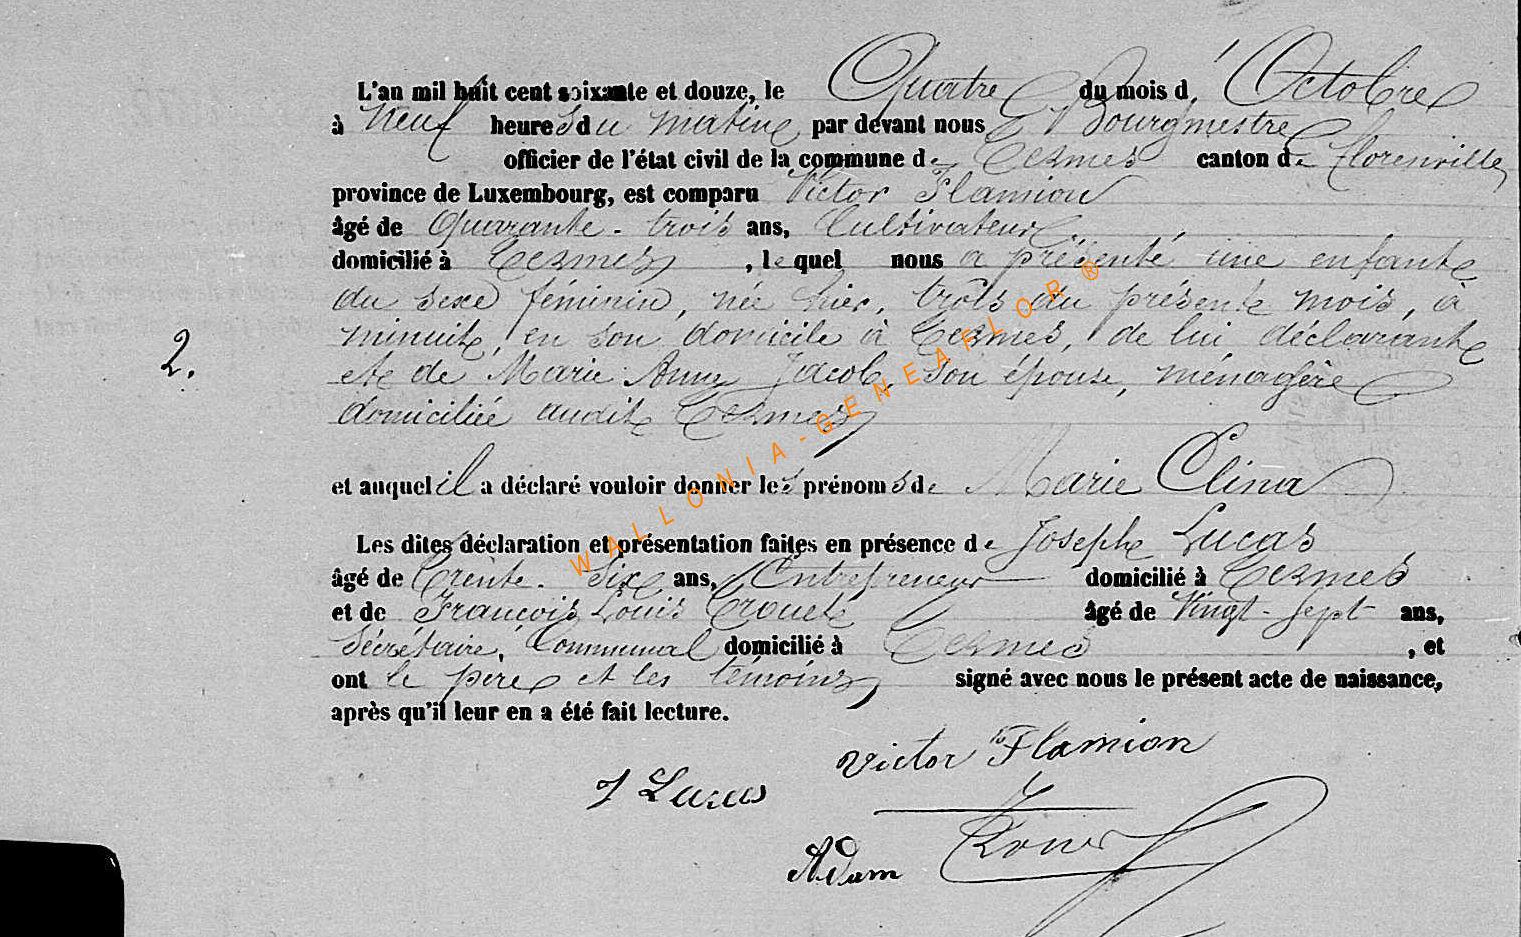 L'an mil huit cent soixante et douze, le Quatre du mois d'Octobre
à Neuf heures du matin, par devant nous Bourgmestre
officier de l'état civil de la commune de Termes canton de Florenville
province de Luxembourg, est comparu Victor Flamion
âgé de Quarante-trois ans, Cultivateur
domicilié à Termes, lequel nous a présenté une enfant
du sexe féminin, née hier, trois du présent mois, à
minuit, en son domicile à Termes, de lui déclarant
2. et de Marie Anne Jacob, son épouse, ménagère
domiciliée audit Termes
et auquel il a déclaré vouloir donner les prénoms de Marie Elina
Les dites déclaration et présentation faites en présence de Joseph Lucas
âgé de Trente-Six ans, Entrepreneur domicilié à Termes
et de François Louis âgé de Vingt-Sept ans,
Sécrétaire Communal domicilié à Termes, et
ont le père et les témoins signé avec nous le présent acte de naissance,
après qu'il leur en a été fait lecture.
Victor Flamion
J Lucas
Adam
WALLONIA-GENEAFLOR®